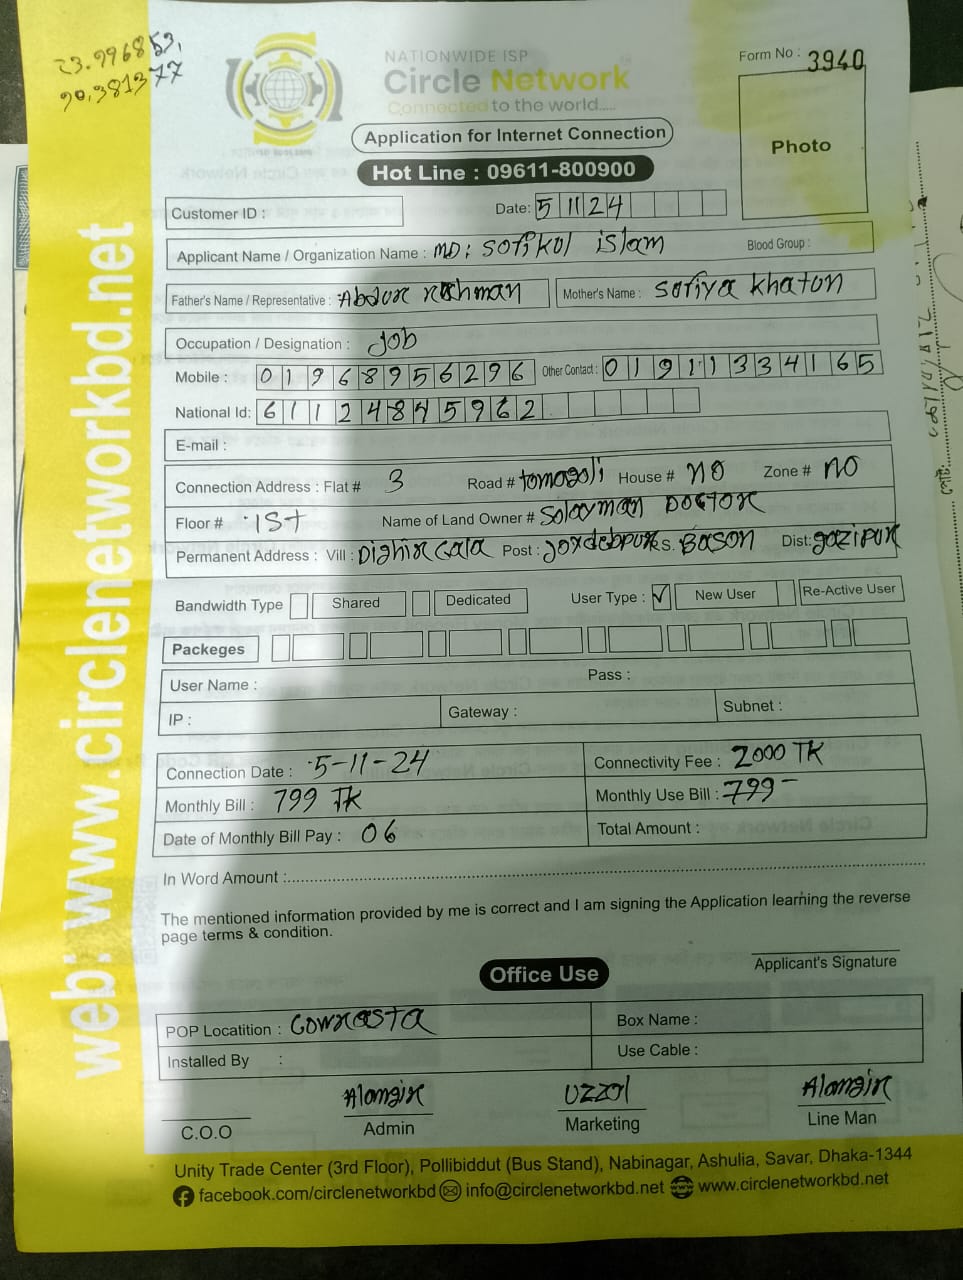 23.996853,
90.381377
NATIONWIDE ISP
Circle Network
Connected to the world.....
Form No : 3940
Application for Internet Connection
Photo
Hot Line : 09611-800900
Customer ID :
Date: 5 11 24
Applicant Name / Organization Name : MD: Sofikul islam Blood Group :
Father's Name / Representative : Abdur rahman Mother's Name : sofiya khaton
Occupation / Designation : Job
Mobile : 01968956296 Other Contact : 01911334165
National Id: 61124845962
E-mail :
Connection Address : Flat # 3 Road # tomogoli House # NO Zone # NO
Floor # 1st Name of Land Owner # Solayman DOCTOR
Permanent Address : Vill : Dighir Cala Post : Joydebpur P.S. BASON Dist: gazipur
Bandwidth Type Shared Dedicated User Type : ✓ New User Re-Active User
Packeges
User Name : Pass :
IP : Gateway : Subnet :
Connection Date : 5-11-24 Connectivity Fee : 2000 TK
Monthly Bill : 799 TK Monthly Use Bill : 799
Date of Monthly Bill Pay : 06 Total Amount :
In Word Amount :
The mentioned information provided by me is correct and I am signing the Application learning the reverse
page terms & condition.
Applicant's Signature
Office Use
POP Locatition : Cowrasta Box Name :
Installed By : Use Cable :
Alamgir UZZOL Alamgir
C.O.O Admin Marketing Line Man
Unity Trade Center (3rd Floor), Pollibiddut (Bus Stand), Nabinagar, Ashulia, Savar, Dhaka-1344
facebook.com/circlenetworkbd info@circlenetworkbd.net www.circlenetworkbd.net
web: www.circlenetworkbd.net